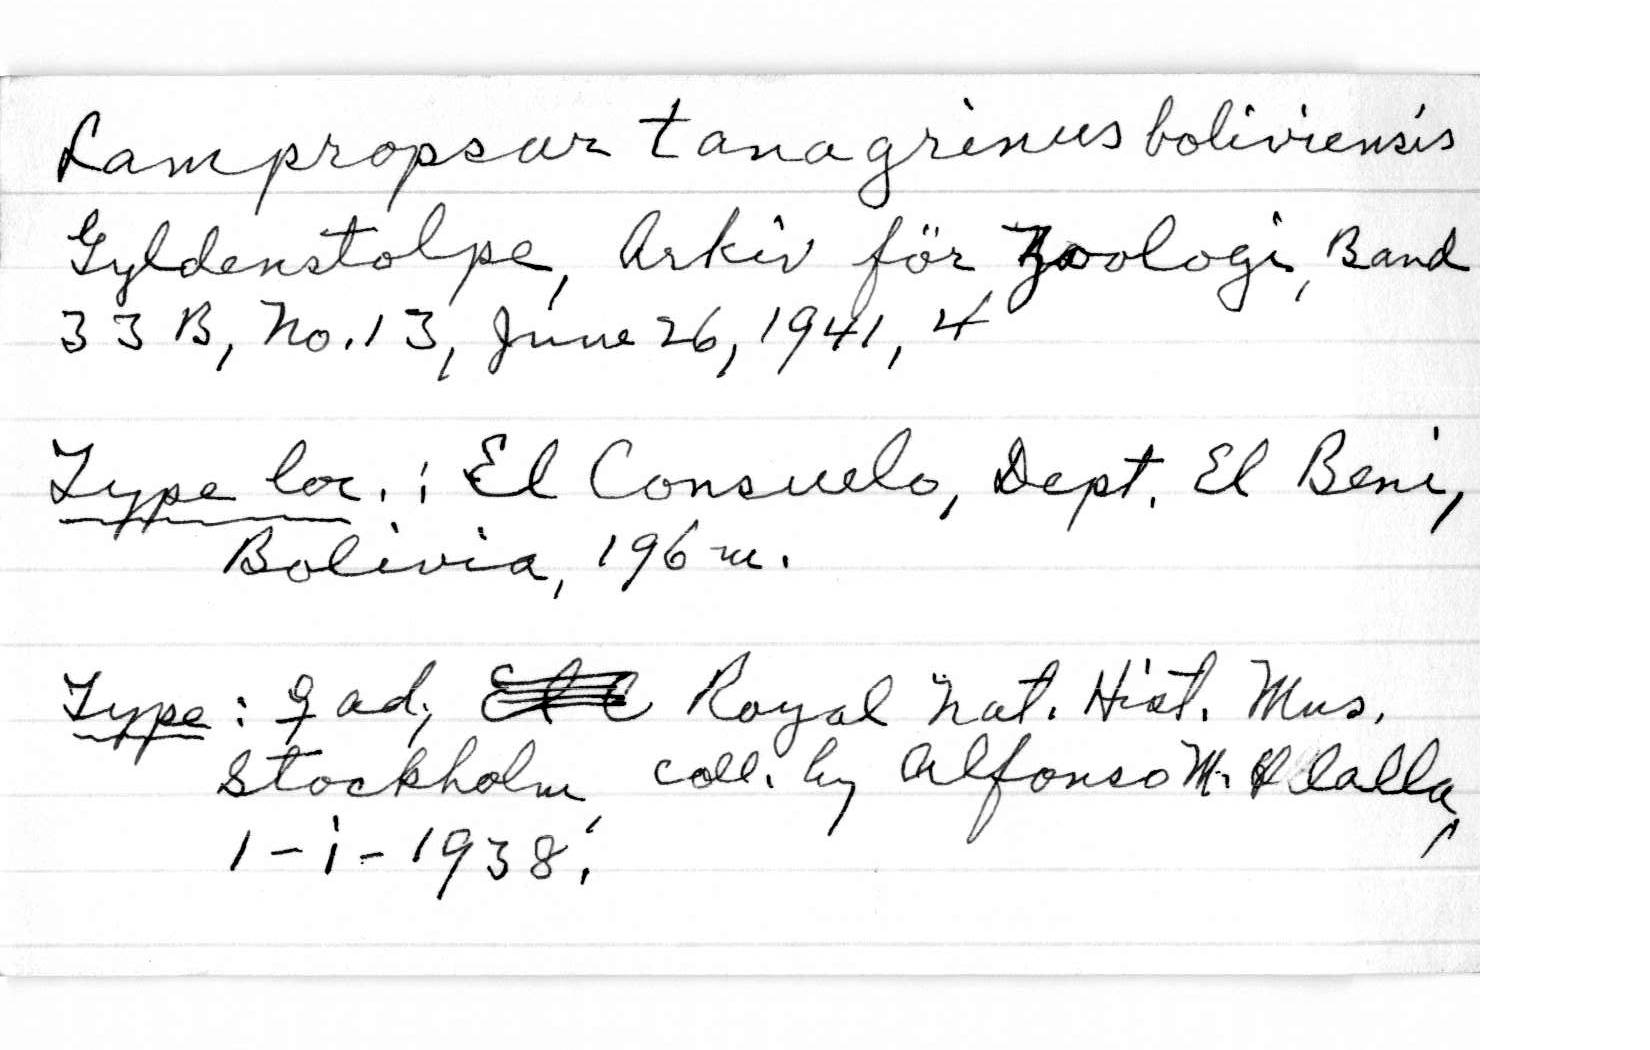 Lampropsar tanagrinus boliviensis
Gyldenstolpe, Arkiv för Zoologi, Band
33 B, No. 13, June 26, 1941, 4
Type loc.: El Consuelo, Dept. El Beni,
Bolivia, 196 m.
Type: ♀ ad., Royal Nat. Hist. Mus.
Stockholm, coll. by Alfonso M. Olalla,
1-i-1938.